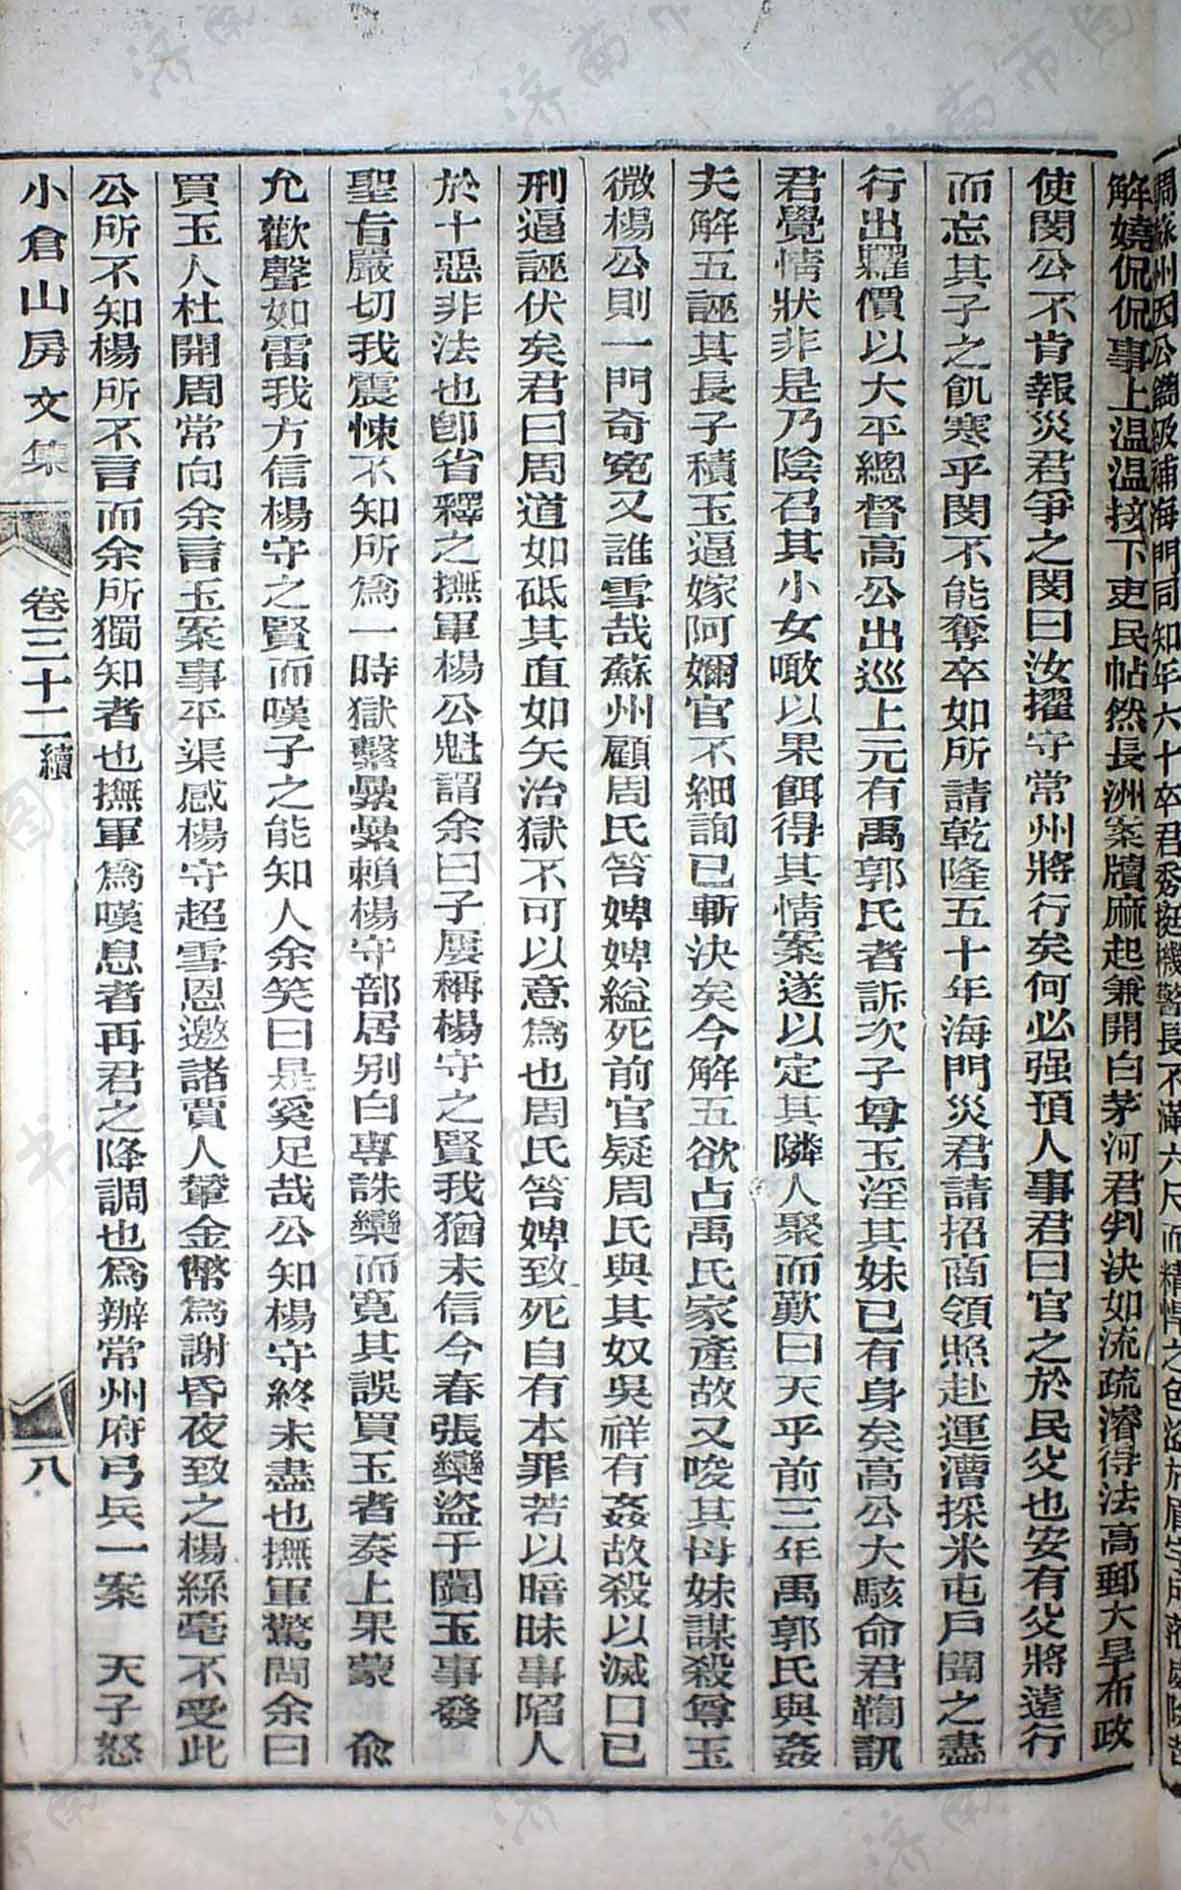 調蘇州因公鐫級補海門同知年六十卒君秀挺機警長不滿六尺而精悍之色溢於眉宇
解嬈侃侃事上溫溫接下吏民帖然長洲案牘麻起兼開白茅河君判決如流疏濬得法高郵大旱布政
使閔公不肯報災君爭之閔曰汝擢守常州將行矣何必强項人事君曰官之於民父也安有父將遠行
而忘其子之飢寒乎閔不能奪卒如所請乾隆五十年海門災君請招商領照赴運漕採米屯戶聞之盡
行出糶價以大平總督高公出巡上元有禹郭氏者訴次子尊玉淫其妹已有身矣高公大駭命君鞫訊
君覺情狀非是乃陰召其小女噉以果餌得其情案遂以定其隣人聚而歎曰天乎前三年禹郭氏與姦
夫解五誣其長子積玉逼嫁阿嬭官不細詢已斬決矣今解五欲占禹氏家產故又唆其母妹謀殺尊玉
微楊公則一門奇冤又誰雪哉蘇州顧周氏笞婢婢縊死前官疑周氏與其奴吳祥有姦故殺以滅口已
刑逼誣伏矣君曰周道如砥其直如矢治獄不可以意爲也周氏笞婢致死自有本罪若以暗昧事陷人
於十惡非法也卽省釋之撫軍楊公魁謂余曰子屢稱楊守之賢我猶未信今春張欒盜于闐玉事發
聖旨嚴切我震悚不知所爲一時獄繫纍纍賴楊守部居別白專誅欒而寬其誤買玉者奏上果蒙　俞
允歡聲如雷我方信楊守之賢而嘆子之能知人余笑曰是奚足哉公知楊守終未盡也撫軍驚問余曰
買玉人杜開周常向余言玉案事平渠感楊守超雪恩邀諸賈人輦金幣爲謝昏夜致之楊絲毫不受此
公所不知楊所不言而余所獨知者也撫軍爲嘆息者再君之降調也爲辦常州府弓兵一案　天子怒
小倉山房文集　卷三十二續　八